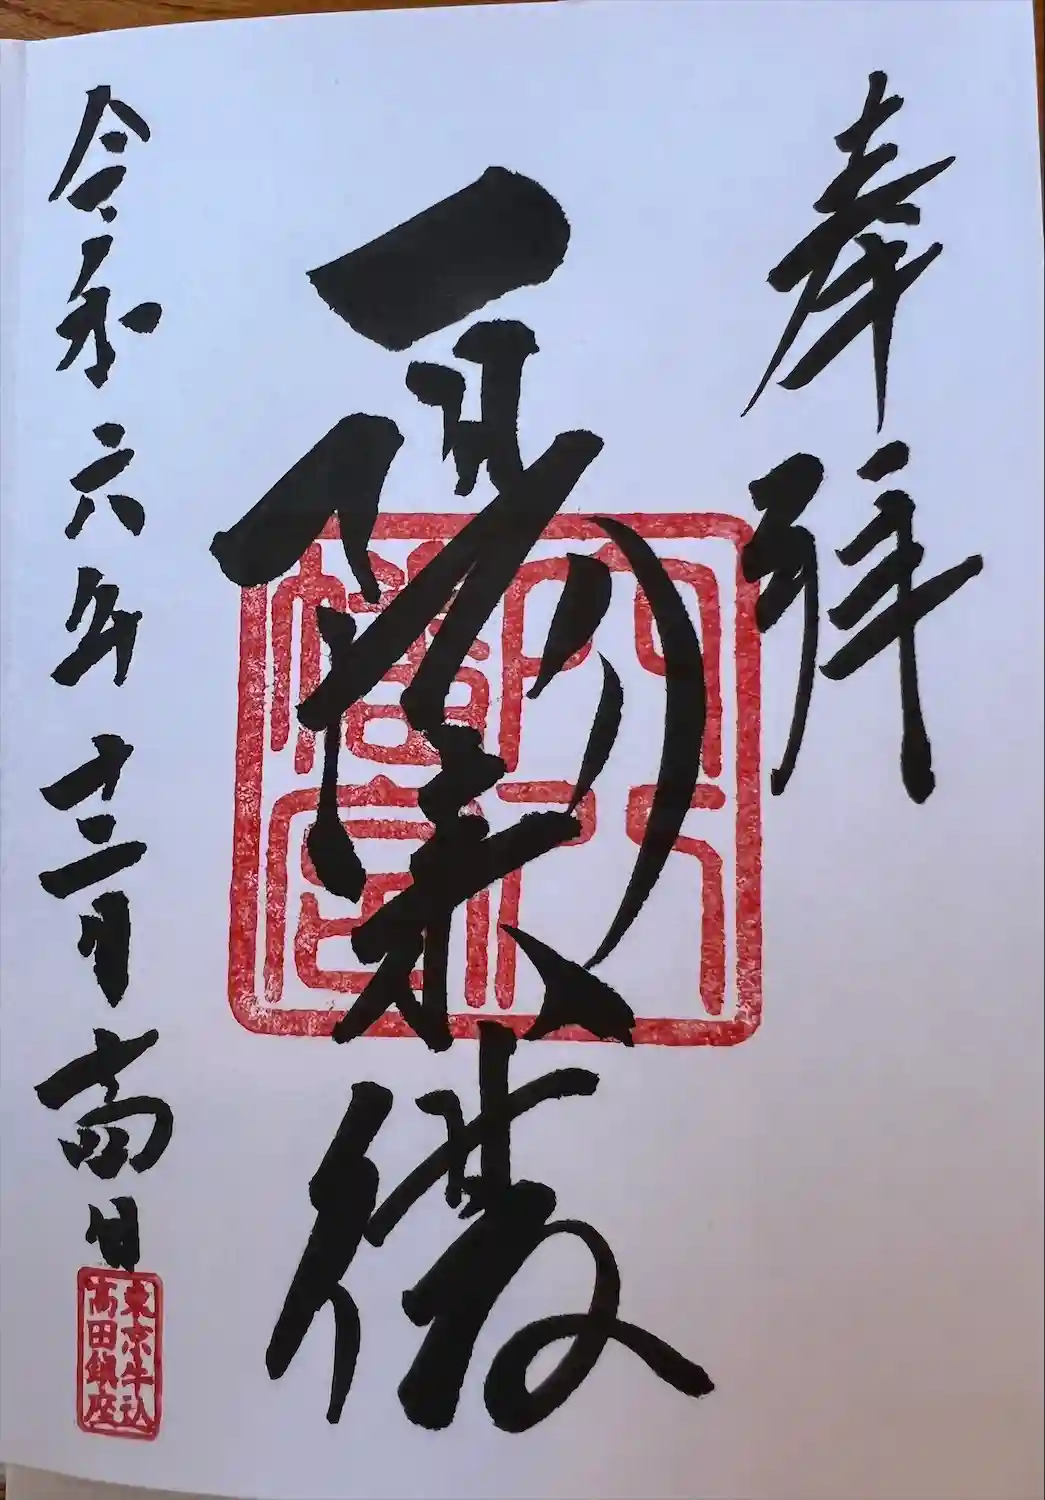 奉拝
一陽来復
穴八
幡宮
令和六年十二月當日
東京牛込
高田鎮座